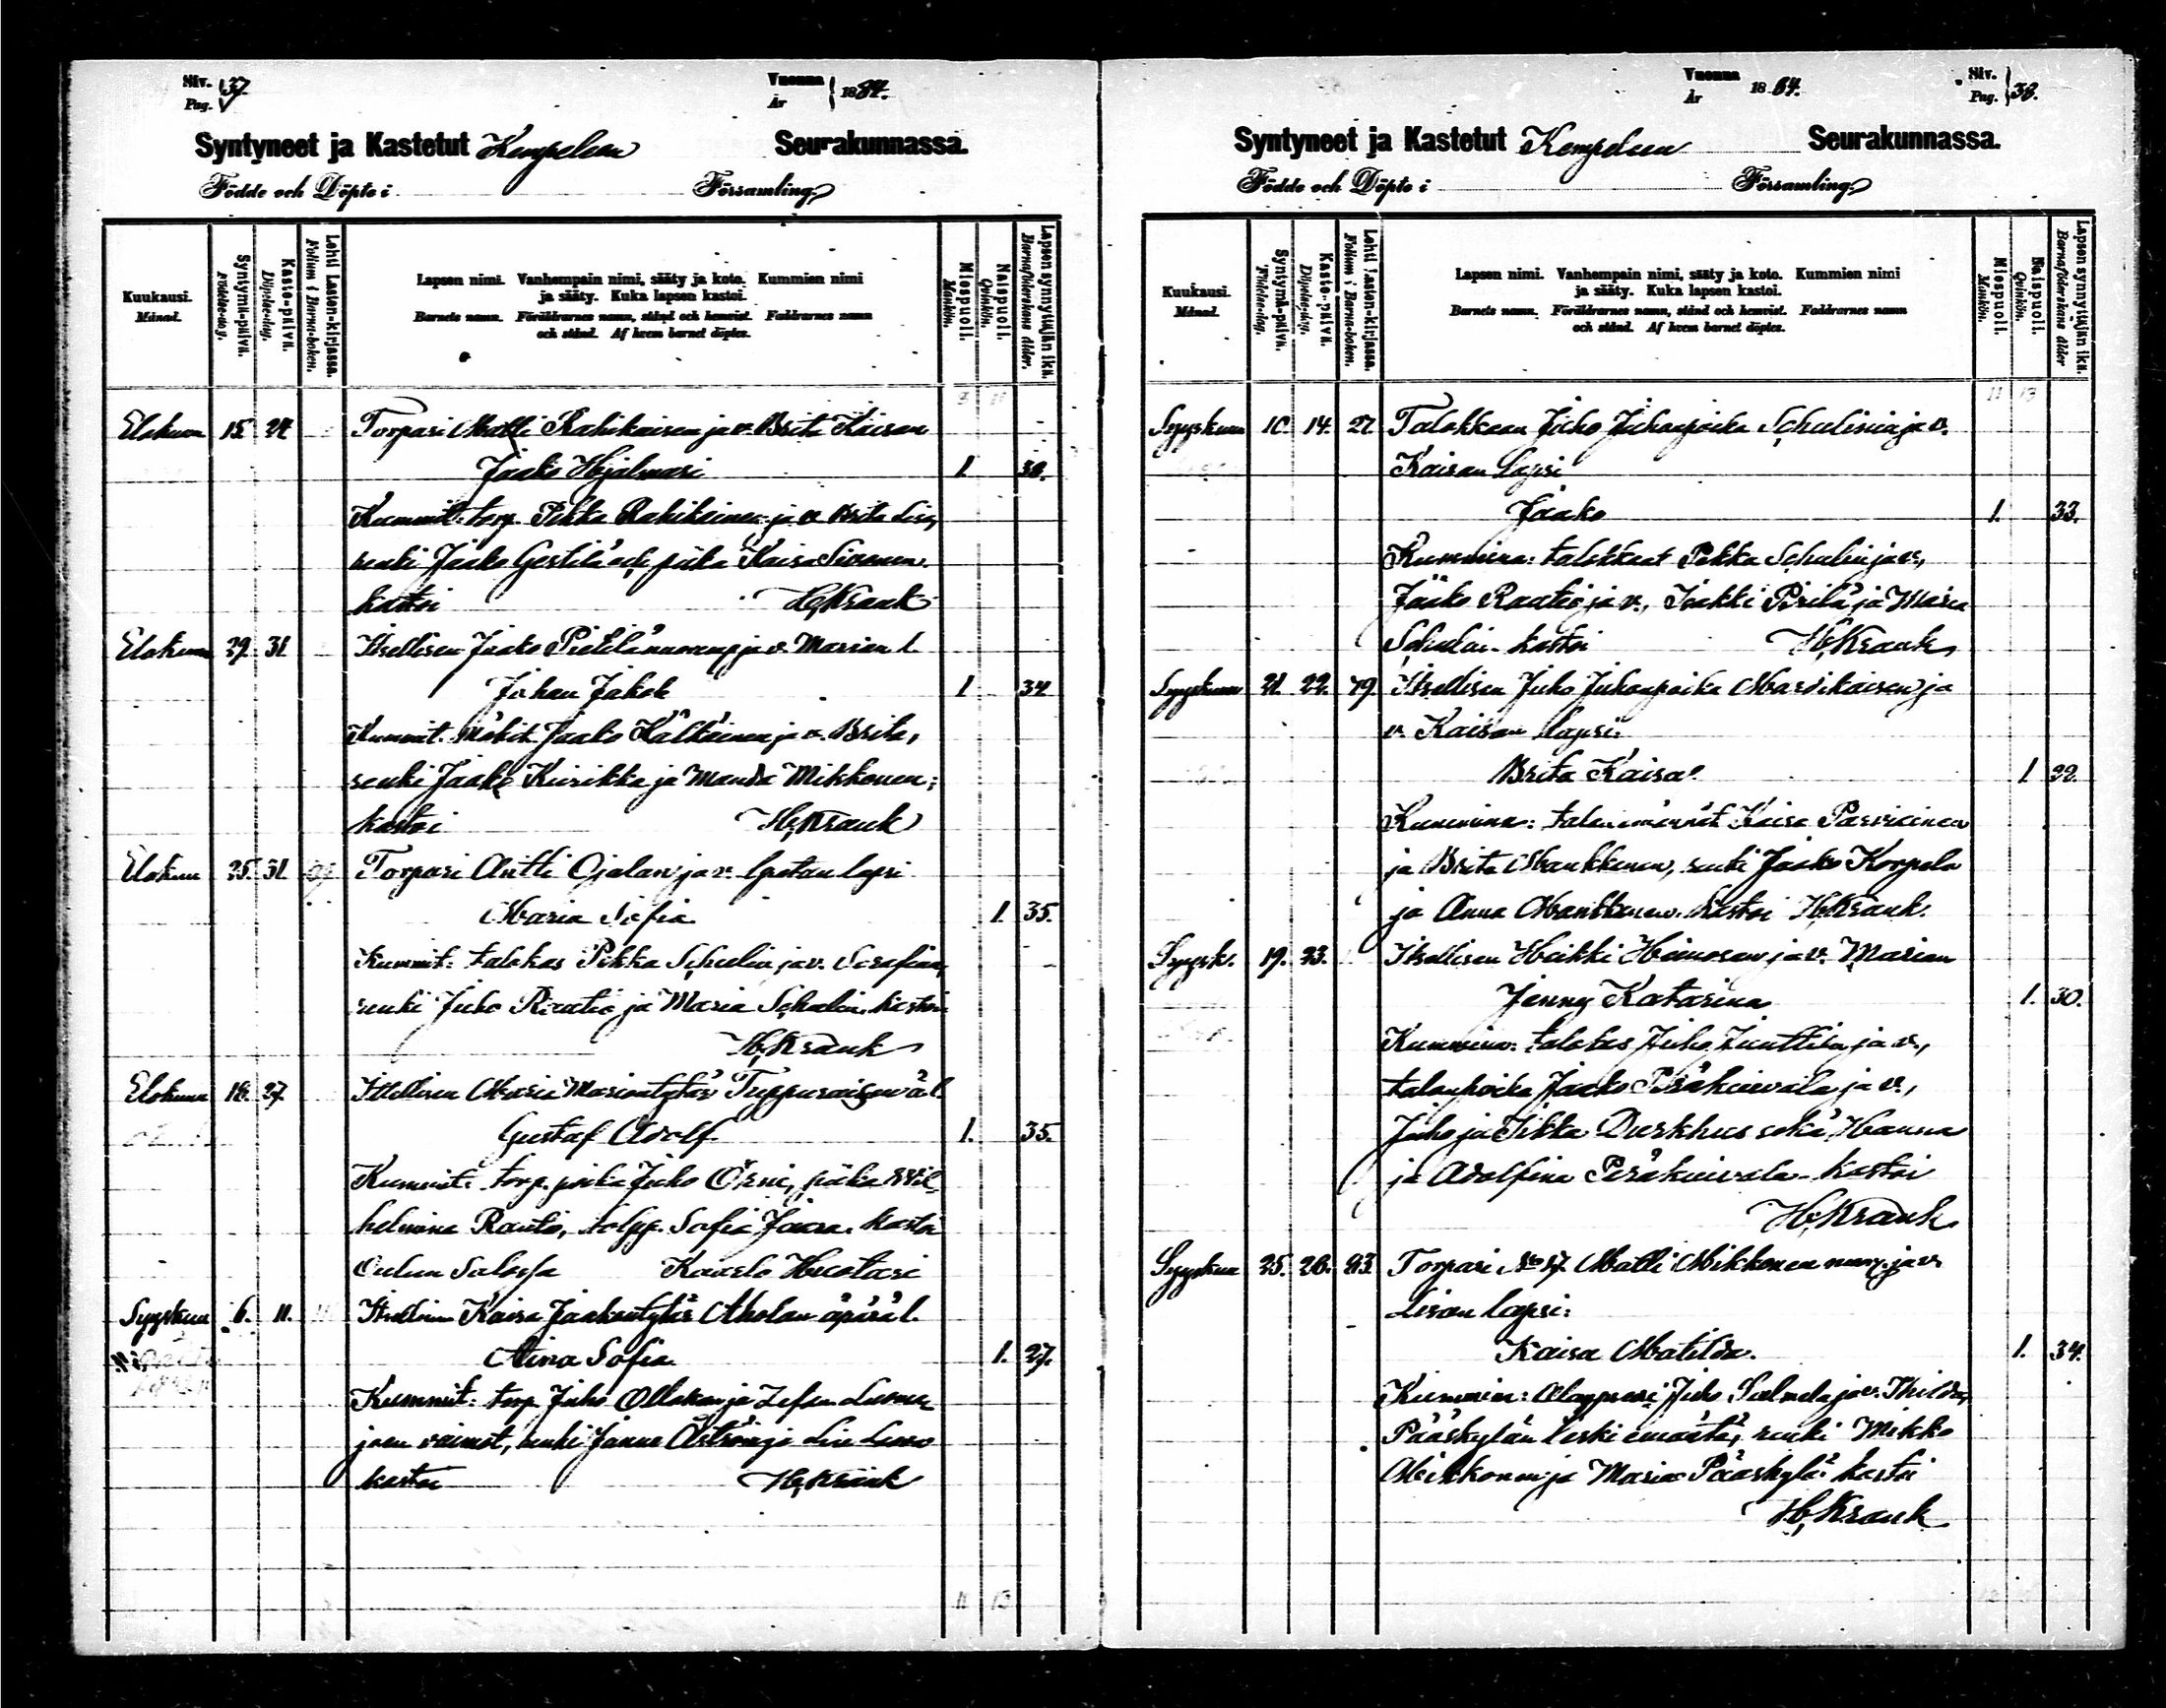 Siv. Pag. 37.
Vuonna År 1884.
Syntyneet ja Kastetut Kempeleen Seurakunnassa.
Födde och Döpte i Församling.
Kuukausi. Månad.
Syntymä-päivä. Födelse-dag.
Kaste-päivä. Döpelse-dag.
Lehti Lasten-kirjassa. Folium i Barna-boken.
Lapsen nimi. Vanhempain nimi, sääty ja koto. Kummien nimi
ja sääty. Kuka lapsen kastoi.
Barnets namn. Föräldrarnes namn, stånd och hemvist. Faddrarnes namn
och stånd. Af hvem barnet döptes.
Miespuoli. Mankön.
Naispuoli. Qvinkön.
Lapsen synnyttäjän ikä. Barnaföderskans ålder.
Elokuun 15 24 Torpari Matti Rahikaisen ja v. Brita Kaisan
Jaako Hjalmari 1.
Kummit: torp. Pekka Rahikainen ja v. Brita Lisa,
renki Jaako Gestilä och piika Kaisa Sivonen.
kastoi H. Krank
Elokuun 29. 31. Itsellisen Jaako Pietilä nuoremp ja v. Marian l.
Johan Jakob 1 34
Kummit. Mökit. Jaako Kälkäinen ja v. Brita,
renki Jaako Kiirikka ja Manda Mikkonen;
kastoi H. Krank
Elokuu 25. 31. Torpari Antti Ojalan ja v. Gretan lapsi
Maria Sofia 1. 35.
Kummit: talokas Pekka Schulin ja v. Serafina,
renki Juho Raatio ja Maria Schulin. kastoi
H. Krank
Elokuun 18. 27 Itsellisen Maria Mariantytär Tuppuraisen ä. l.
Gustaf Adolf 1. 35.
Kummit: torp. poika Juho Örni, piika Wil-
helmina Rautio, Sofia Jaara. kastoi
Oulun Salossa Kaarlo Huotari
Syyskuu 6. 11. Itsellisen Kaisa Jaakontytär Aholan äpärä l.
Aina Sofia 1. 27.
Kummit: torp. Juho Ollakan ja
joen vaimot, renki Janne Åström ja
kastoi H. Krank
Vuonna År 1884.
Siv. Pag. 38.
Syntyneet ja Kastetut Kempeleen Seurakunnassa.
Födde och Döpte i Församling.
Kuukausi. Månad.
Syntymä-päivä. Födelse-dag.
Kaste-päivä. Döpelse-dag.
Lehti Lasten-kirjassa. Folium i Barna-boken.
Lapsen nimi. Vanhempain nimi, sääty ja koto. Kummien nimi
ja sääty. Kuka lapsen kastoi.
Barnets namn. Föräldrarnes namn, stånd och hemvist. Faddrarnes namn
och stånd. Af hvem barnet döptes.
Miespuoli. Mankön.
Naispuoli. Qvinkön.
Lapsen synnyttäjän ikä. Barnaföderskans ålder
Syyskuun 10. 14. 27. Talokkaan Juho Juhonpoika Schulinin ja v.
Kaisan lapsi
Jaako 1. 33.
Kummina: talokkaat Pekka Schulin ja v.,
Jaako Raatio ja v., Isakki Pirilä ja Maria
Schulin. kastoi H. Krank
Syyskuun 21. 22. 79. Itsellisen Juho Juhonpoika Mardikaisen ja
v. Kaisan lapsi:
Brita Kaisa 1. 22.
Kummina: talonemännät Kaisa Parviainen
ja Brita Mankkinen, renki Jaako Korpela
ja Anna Mankkinen. kastoi H. Krank.
Syysk. 19. 23. Itsellisen Heikki Heimosen ja v. Marian
Jenny Katarina 1. 30.
Kummina: talokas Juho Junttila ja v.,
talonpoika Jaako Peräkuivala ja v.,
Juho ja Durkhus sekä Hanna
ja Adolfina Peräkuivala. kastoi
H. Krank
Syyskuu 25. 26. 93. Torpari No 17. Matti Mikkonen nuor. ja v.
Liisan lapsi:
Kaisa Matilda. 1. 34.
Kummina: Juho Salmela ja v. Thilda,
Pääskylän leski emäntä, renki Mikko
Mikkonen ja Maria Pääskylä. kastoi
H. Krank